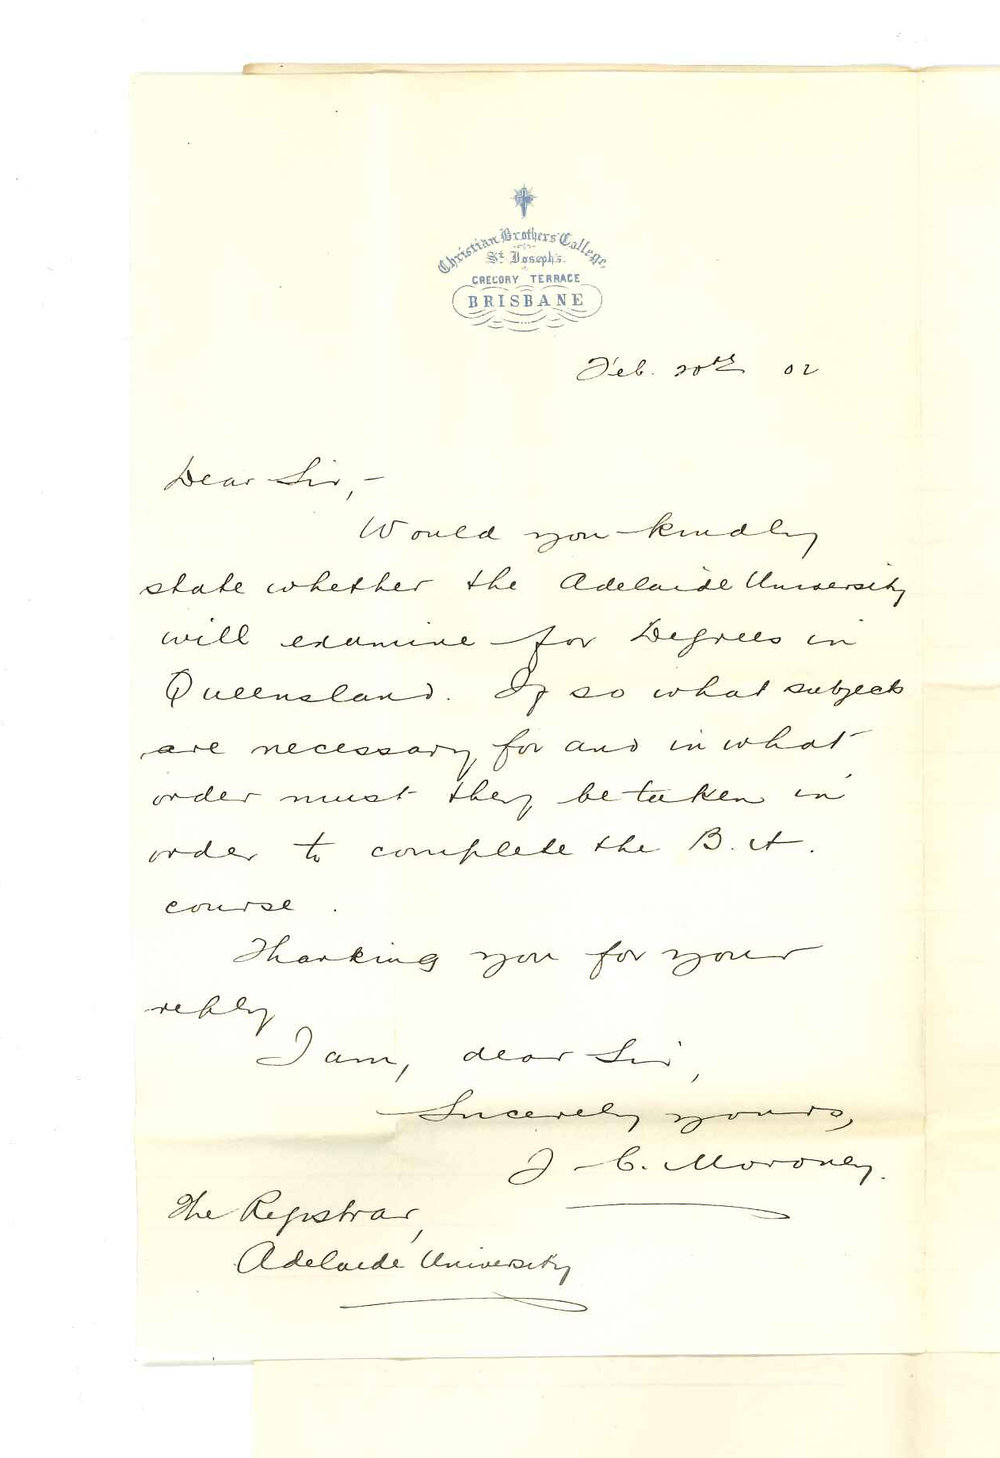 Christian Brothers' College,
St. Joseph's.
GREGORY TERRACE
BRISBANE
Feb. 20th 02
Dear Sir,-
Would you kindly
state whether the Adelaide University
will examine for Degrees in
Queensland. If so what subjects
are necessary for and in what
order must they be taken in
order to complete the B.A.
course.
Thanking you for your
reply
I am, dear Sir,
Sincerely yours,
J. C. Moroney.
The Registrar,
Adelaide University